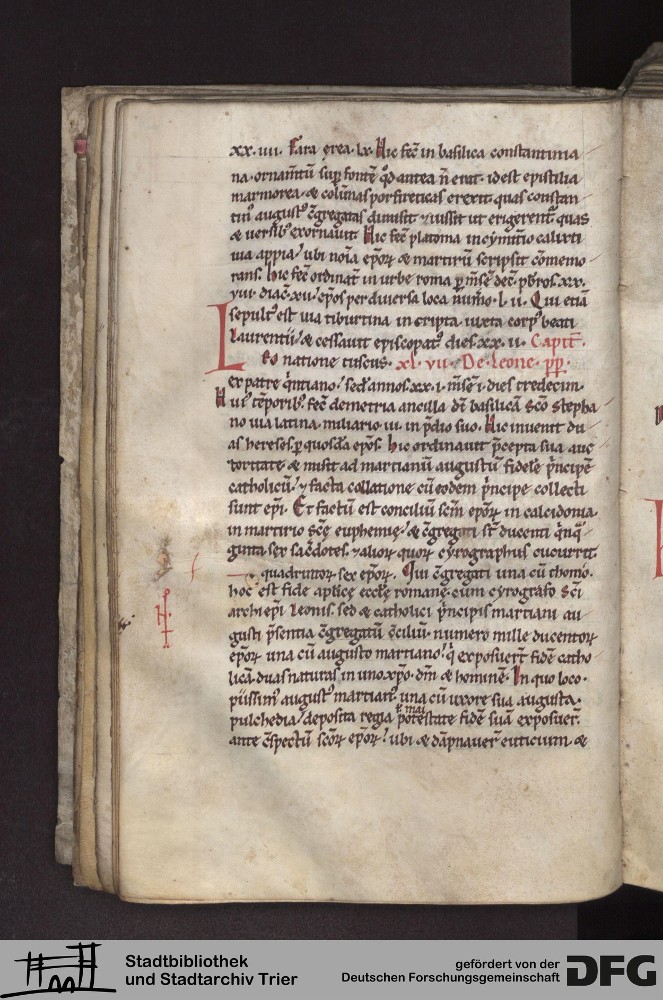 xx. iiii. Fara ęrea. lx. Hic fec̄ in basilica constantinia
na. ornam̄tū sup̱ fontē q̇d antea ñ erat. id est epistilia
marmorea. & colūnas porfireticas erexit quas constan
tin᷒ august᷒ c̄gregatas dimisit ⁊ iussit ut erigerent᷒. quas
& uersib᷒ exornauit Hic fec̄ platoma in cymit̄io calixti
uia appia. ubi noīa ep̄oꝝ & martirū scripsit c̄memo
rans. Hic fec̄ ordinat̄ in urbe roma p̱ m̄se dec̄. pb̄ros. xxx.
viii. diac̄. xii. ep̄os per diuersa loca nūm̄o. l. ii. Qui etiā
sepult᷒ est uia tiburtina in cripta. iuxta corp᷒ beati
Laurentii. & cessauit episcopat᷒ dies. xx. ii. Capit̄.
LEo natione tuscus. xl. vii. De Leone. pp̄.
ex patre q̇ntiano. sed̄. annos. xx. i. m̄se i. dies tredecim.
Hui᷒ tēporib᷒. fec̄ demetria ancilla dī basilicā sc̄o stepha
no uia latina. miliario. iii. in p̄dio suo. Hic inuenit du
as hereses. p̱ quosdā ep̄os. Hic ordinauit p̄cepta sua auc
toritate & misit ad martianū augustū fidelē ṗncipē
catholicū. ⁊ facta collatione cū eodem ṗncipe collecti
sunt ep̄i. Et factū est conciliū sc̄m ep̄oꝝ in calcidonia
in martirio sc̄e euphemię. & c̄gregati st̄ ducenti q̇nq᷒
ginta sex sac̄dotes. ⁊ alioꝝ quoꝝ cyrographus cucurrit.
quadruntoꝝ sex ep̄oꝝ. Qui c̄gregati una cū thomo.
hoc est fide apl̄icę eccl̄ę romanę. cum cyrografo sc̄i
archiep̄i Leonis. sed & catholici ṗncipis martiani au
gusti p̄sentia c̄gregatū c̄ciliū. numero mille ducentoꝝ
ep̄oꝝ una cū augusto martiano. q̇ exposuerṯ fidē catho
licā. duas naturas in uno xp̄o. dm̄ & hominē. In quo loco.
piissim᷒ august᷒ martian᷒. una cū uxore sua augusta.
pulchedia. deposita regia potestate fidē suā exposuer̄.
ante c̄spectū sc̄oꝝ ep̄oꝝ. ubi & dāpnauer̄ euticium &
Stadtbibliothek
und Stadtarchiv Trier
gefördert von der
Deutschen Forschungsgemeinschaft
DFG